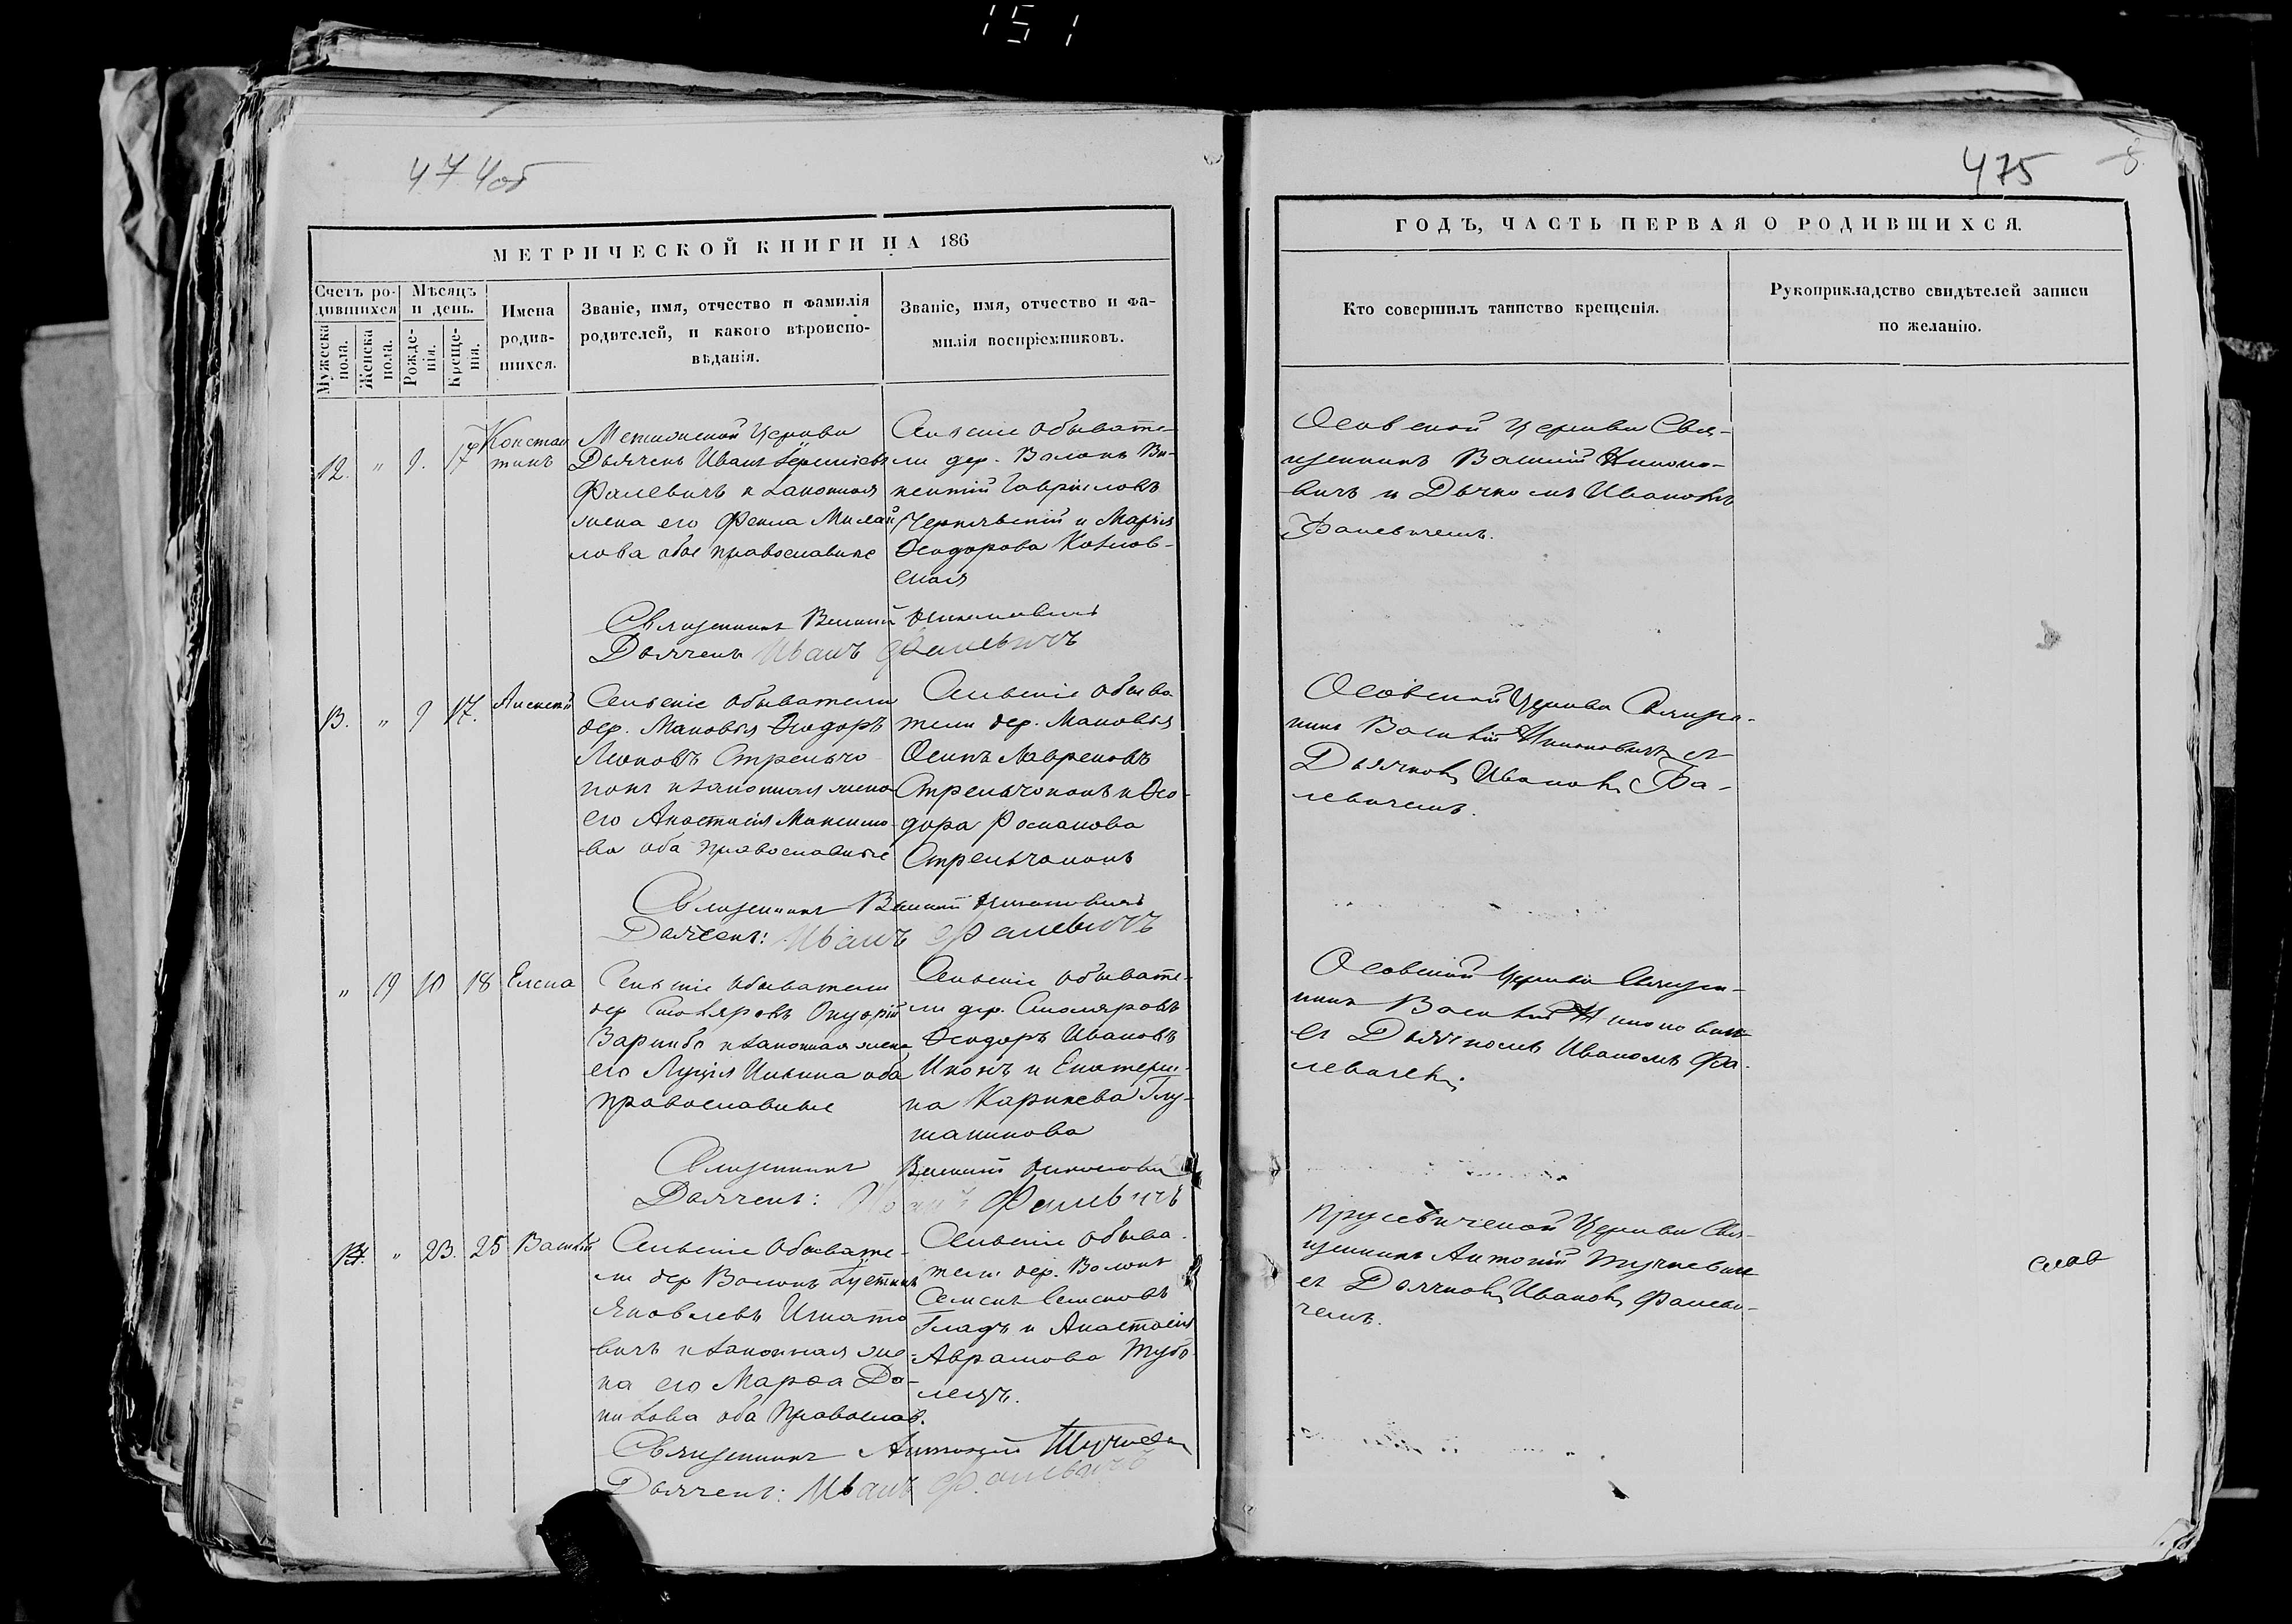 151
474об
МЕТРИЧЕСКОЙ КНИГИ НА 186
Счетъ ро-
дившихся
Мѣсяцъ
и день.
Мужеска
пола.
Женска
пола.
Рожде-
нія.
Креще-
нія.
Имена
родив-
шихся.
Званіе, имя, отчество и фамилія
родителей, и какого вѣроиспо-
вѣданія.
Званіе, имя, отчество и фа-
милія воспріемниковъ.
12. " 9. 17 Констан
тинъ
Церкви
Дьячекъ Иванъ
Фалевичъ и законная
жена его Фекла Михай
лова обое православные
Сельскіе обывате-
ли дер. Волокъ Ви-
кентій Гавриловъ
Чернявскій и Марія
Ѳеодорова Козлов-
ская
Священникъ
Дьячекъ Иванъ Фалевичъ
13. " 9 17. Алексѣй
Сельскіе обыватели
дер. Маковья Ѳеодоръ
Стрельчо
нокъ и законная жена
его Анастасія Максимо-
ва оба православные
Сельскіе обыва
тели дер. Маковья
Осипъ Лавреновъ
Стрельчонокъ и Ѳео-
дора Романова
Стрельчонокъ
Священникъ
Дьячекъ: Иванъ Фалевичъ
" 19 10 18 Елена
Сельскіе обыватели
дер Столяровъ
и законная жена
его Луція Ильина оба
православные
Сельскіе обывате-
ли дер. Столяровъ
Ѳеодоръ Ивановъ
и Екатери-
на
Священникъ
Дьячекъ: Иванъ Фалевичъ
14. " 23. 25 Василій
Сельскіе обывате-
ли дер Волокъ
Яковлевъ Игнато
вичъ и законная же-
на его Марѳа Да-
нилова оба православ.
Сельскіе обыва-
тели дер. Волокъ
Семенъ Семеновъ
Гладъ и Анастасія
Аврамова
Священникъ Антоній
Дьячекъ: Иванъ Фалевичъ
475
8
ГОДЪ, ЧАСТЬ ПЕРВАЯ О РОДИВШИХСЯ.
Кто совершилъ таинство крещенія.
Рукоприкладство свидѣтелей записи
по желанію.
Осовской Церкви Свя-
щенникъ Василій Никоно-
вичъ и Дьячкомъ Иваномъ
Фалевичемъ.
Осовской Церкви Священ-
никъ Василій Никоновичъ съ
Дьячкомъ Иваномъ Фа-
левичемъ.
Осовской Церкви Священ-
никъ Василій Никоновичъ
съ Дьячкомъ Иваномъ Фа-
левичемъ.
Прусевичской Церкви Свя-
щенникъ Антоній
съ Дьячкомъ Иваномъ Фалеви-
чемъ.